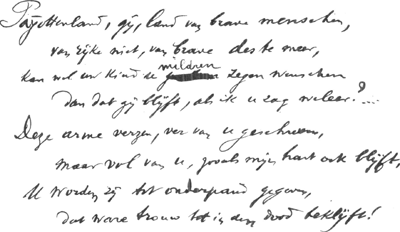 Pajottenland, gij, land van brave menschen,
van rijke niet, van brave des te meer,
kan wel uw kind u mildren zegen wenschen
dan dat gij blijft, als ik u zag weleer?...
Deze arme verzen, ver van u geschreven,
maar vol van u, zooals mijn hart ook blijft,
U worden zij tot onderpand gegeven,
dat ware trouw tot in den dood beklijft!